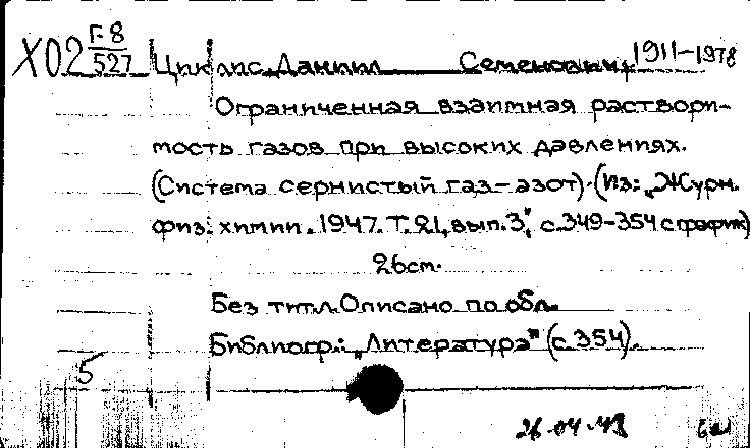 Х02 Г-8/527 Циклис, Даниил Семенович, 1911-1978
Ограниченная взаимная раствори-
мость газов при высоких давлениях.
(Система сернистый газ-азот). (Из: „Журн.
физ. химии. 1947. Т. 21, вып. 3," с. 349-354 с график)
26 см.
Без тит. л. Описано по обл.
Библиогр.: „Литература" (с. 354).
5
26-04-49